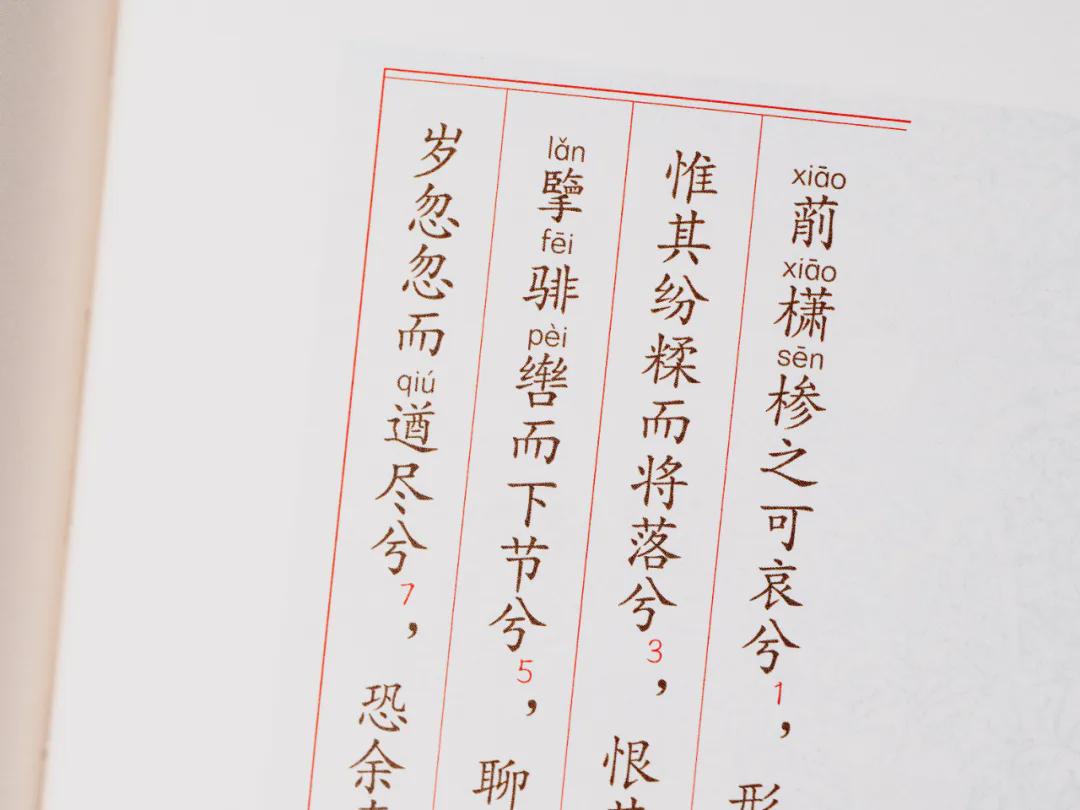 xiāo xiāo sēn
萷櫹椮之可哀兮1，形
惟其纷糅而将落兮3，恨其
lǎn fēi pèi
擥𬴂辔而下节兮5，聊
qiú
岁忽忽而遒尽兮7，恐余